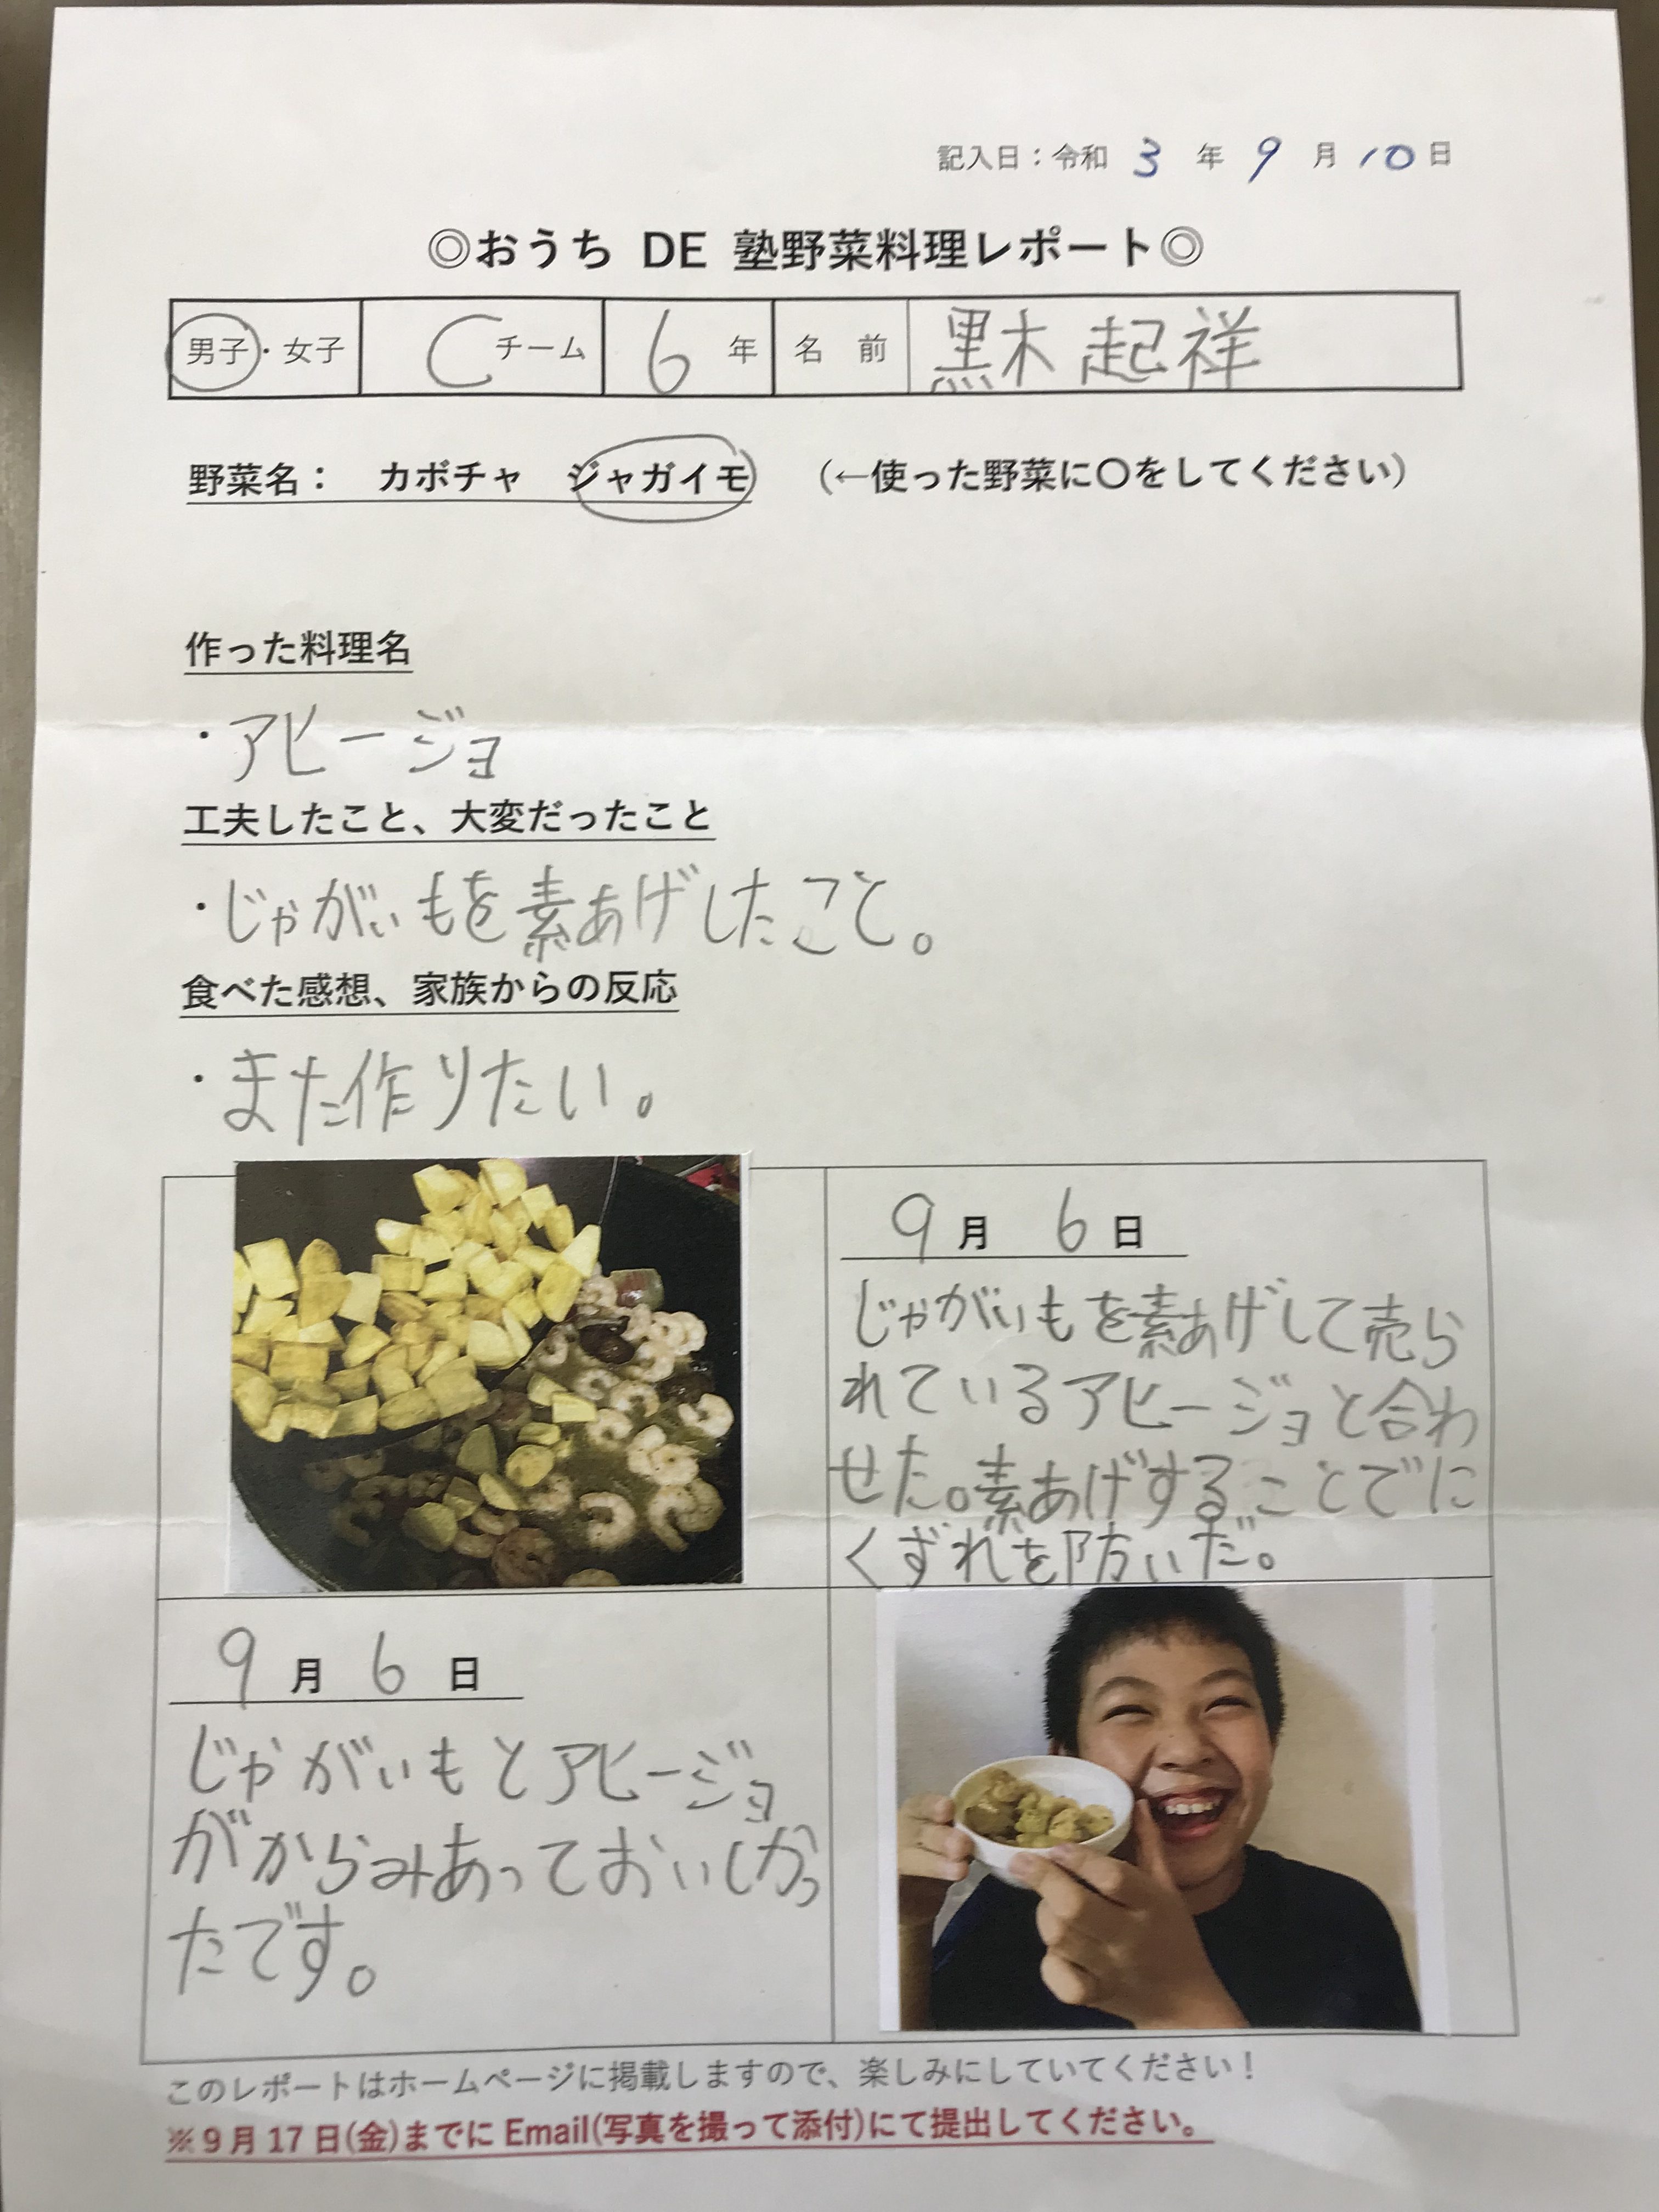 記入日：令和 3 年 9 月 10 日
◎おうち DE 塾野菜料理レポート◎
男子・女子 C チーム 6 年 名 前 黒木 起祥
野菜名： カボチャ ジャガイモ （←使った野菜に〇をしてください）
作った料理名
・アヒージョ
工夫したこと、大変だったこと
・じゃがいもを素あげしたこと。
食べた感想、家族からの反応
・また作りたい。
9 月 6 日
じゃがいもを素あげして売ら
れているアヒージョと合わ
せた。素あげすることでに
くずれを防いだ。
9 月 6 日
じゃがいもとアヒージョ
がからみあっておいしかっ
たです。
このレポートはホームページに掲載しますので、楽しみにしていてください！
※9月17日(金)までに Email(写真を撮って添付)にて提出してください。